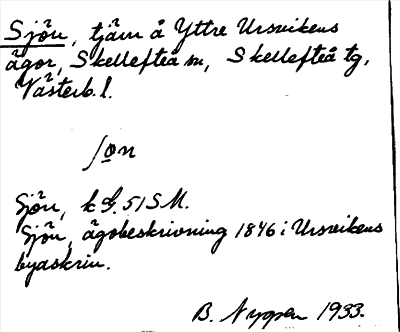 Sjön, tjärn å Yttre Ursvikens
ägor, Skellefteå sn, Skellefteå tg,
Västerb. l.
ʃo̲n
Sjön, k G. 51 S M.
Sjön, ägobeskrivning 1846 i Ursvikens
byaskrin.
B. Nygren 1933.